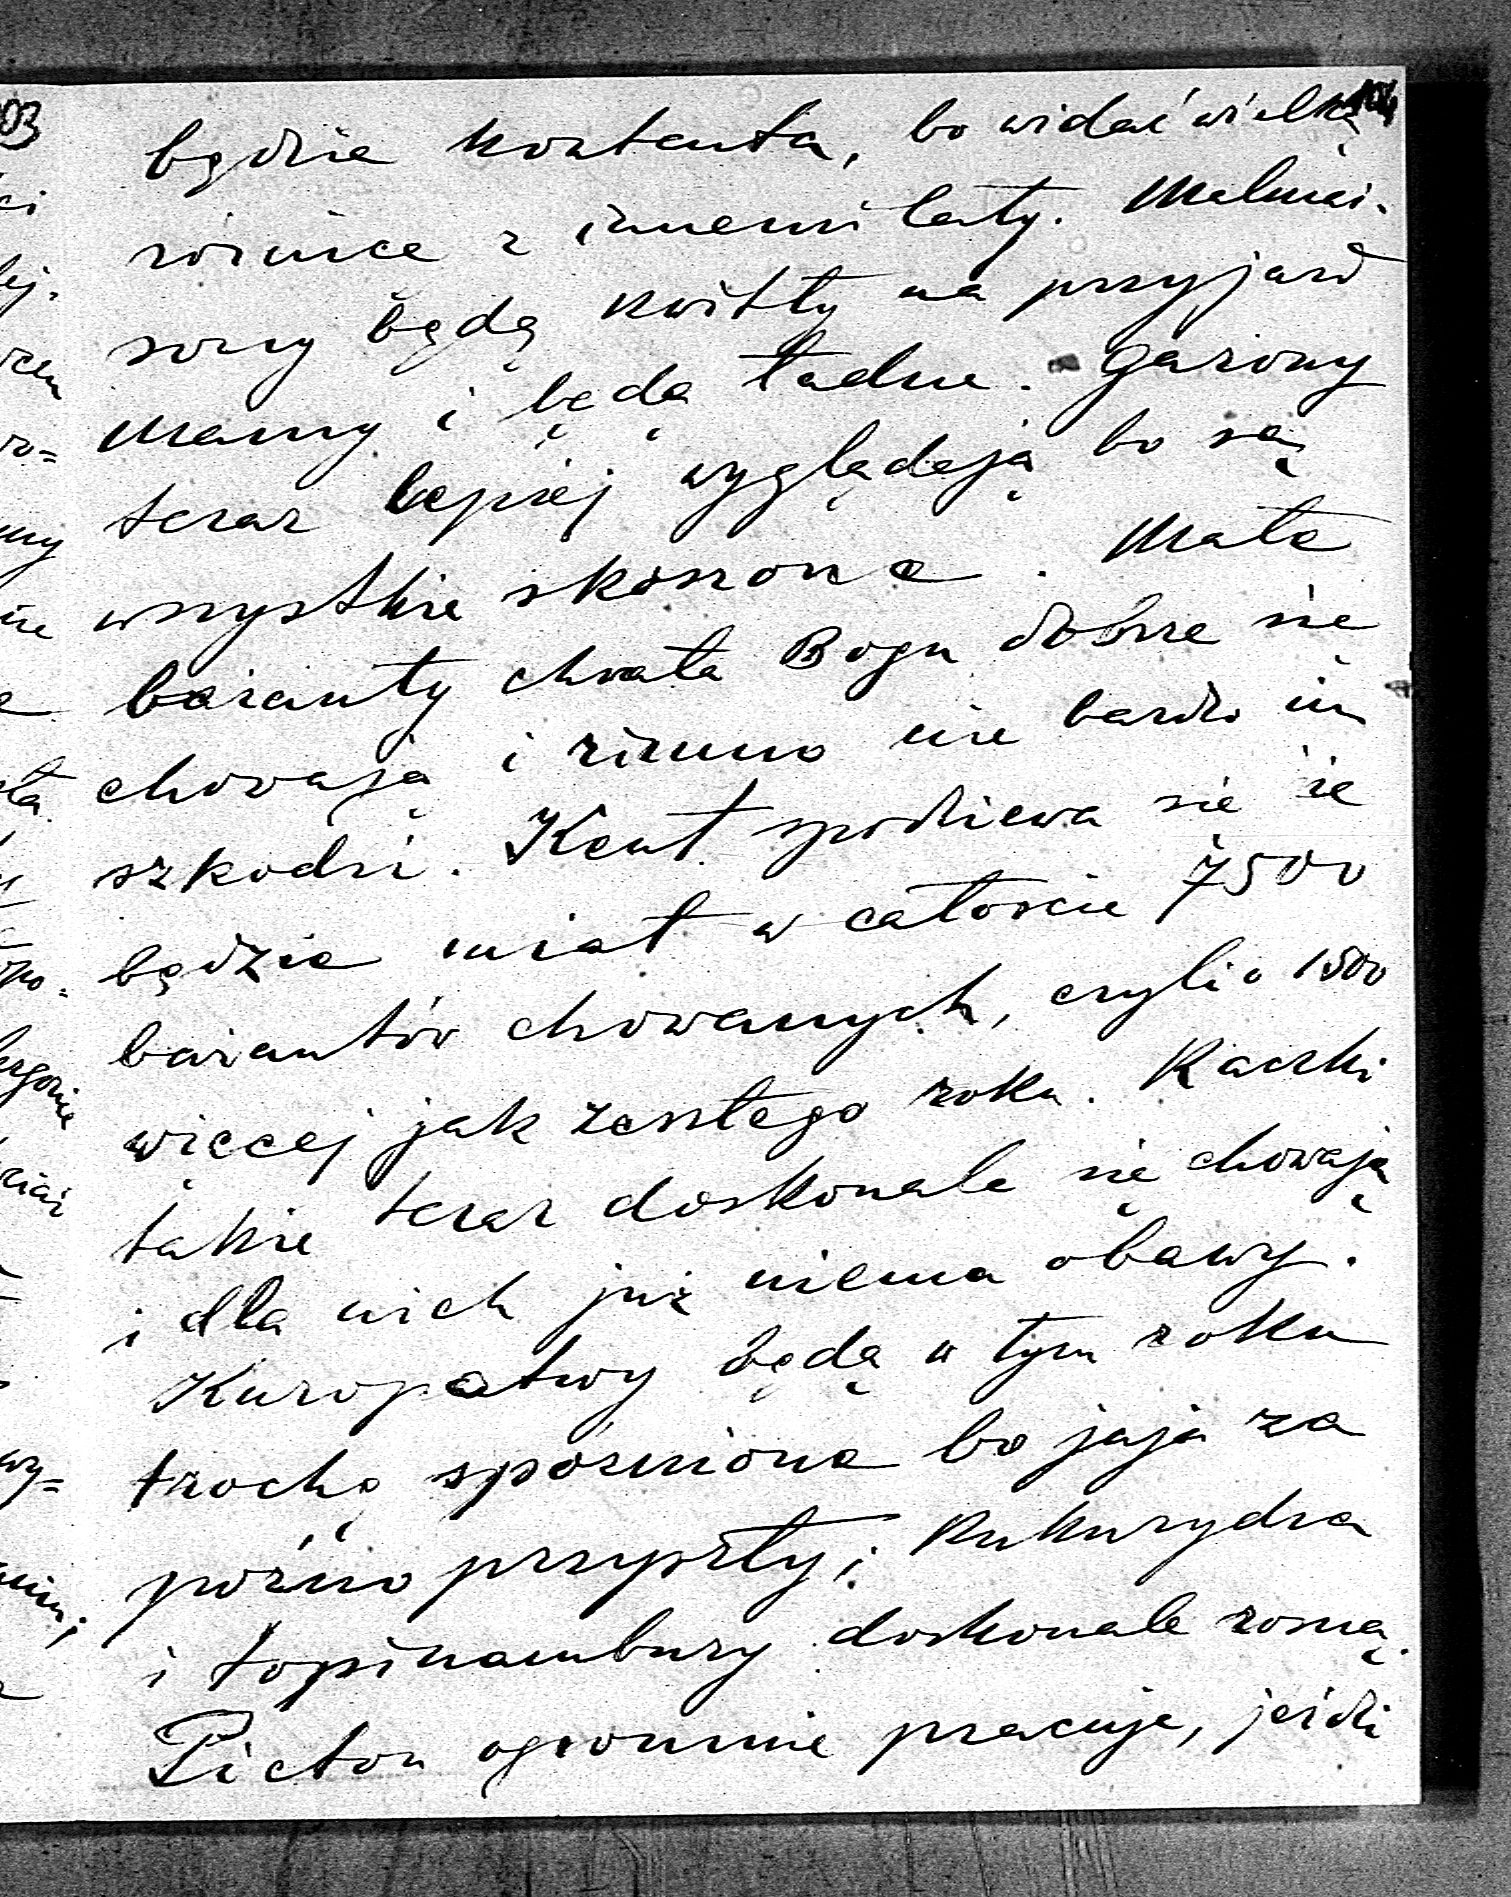 104
będzie kontenta, bo widać wielką
różnicę z innemi laty. Malmai-
sony będą kwitły na przyjazd
Mamy i będą ładne. Gazony
teraz lepiej wyglądają bo są
wszystkie skoszone. Małe
bażanty chwała Bogu dobrze się
chowają i zimno nie bardzo im
szkodzi. Kent spodziewa się że
będzie miał w całości 7500
bażantów chowanych, czyli o 1500
więcej jak zeszłego roku. Kaczki
także teraz doskonale się chowają
i dla nich już niema obawy.
Kuropatwy będą w tym roku
trochę spóźnione bo jaja za
późno przyszły; Kukurydza
i topinambury doskonale rosną.
Picton ogromnie pracuje, jeździ